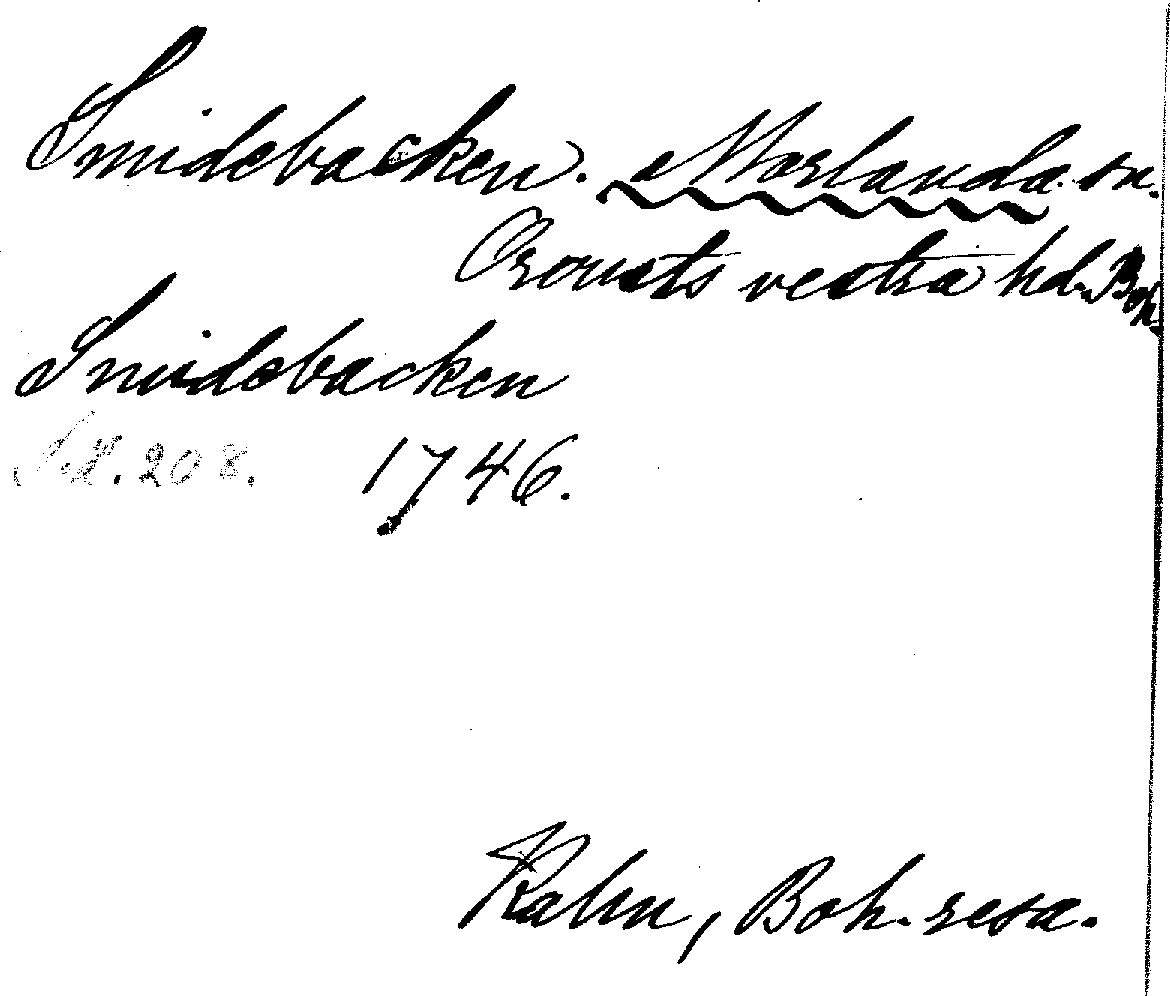 Smidebacken. Morlanda sn.
Orousts vestra hd. Boh.
Smidebacken
S. 208. 1746.
Kalm, Boh. resa.